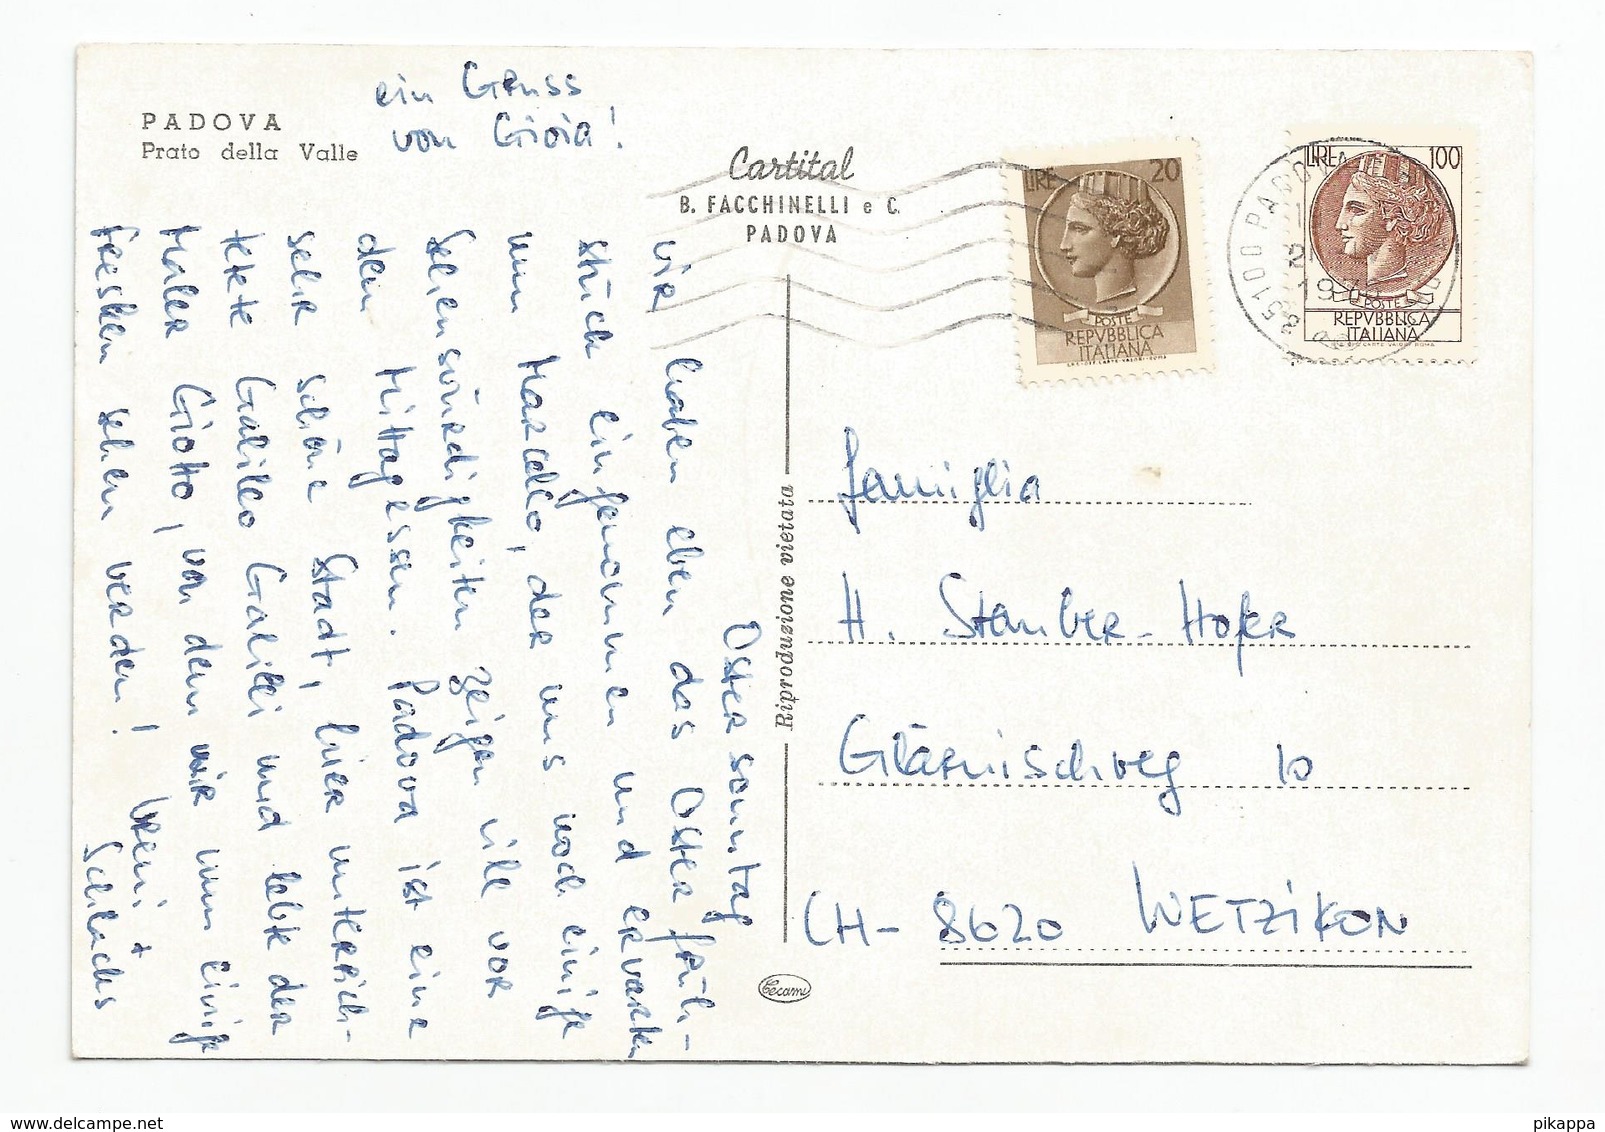 PADOVA
Prato della Valle
ein Gruss
von Gioia!
Cartital
B. FACCHINELLI e C.
PADOVA
LIRE 20
POSTE
REPVBBLICA
ITALIANA
LIRE 100
POSTE
REPVBBLICA
ITALIANA
35100 PADOVA
Riproduzione vietata
Ostersonntag
wir haben eben das Osterfrüh-
stück eingenommen und erwarten
nun Marcello, der uns noch einige
Sehenswürdigkeiten zeigen will vor
dem Mittagessen. Padova ist eine
sehr schöne Stadt, hier unterrich-
tete Galileo Galilei und lebte der
Maler Giotto, von dem wir nun einige
Fresken sehen werden! Vreni +
Schlachs
Famiglia
H. Stauber-Hofer
Glärnischweg 10
CH-8620 WETZIKON
Cecami
pikappa